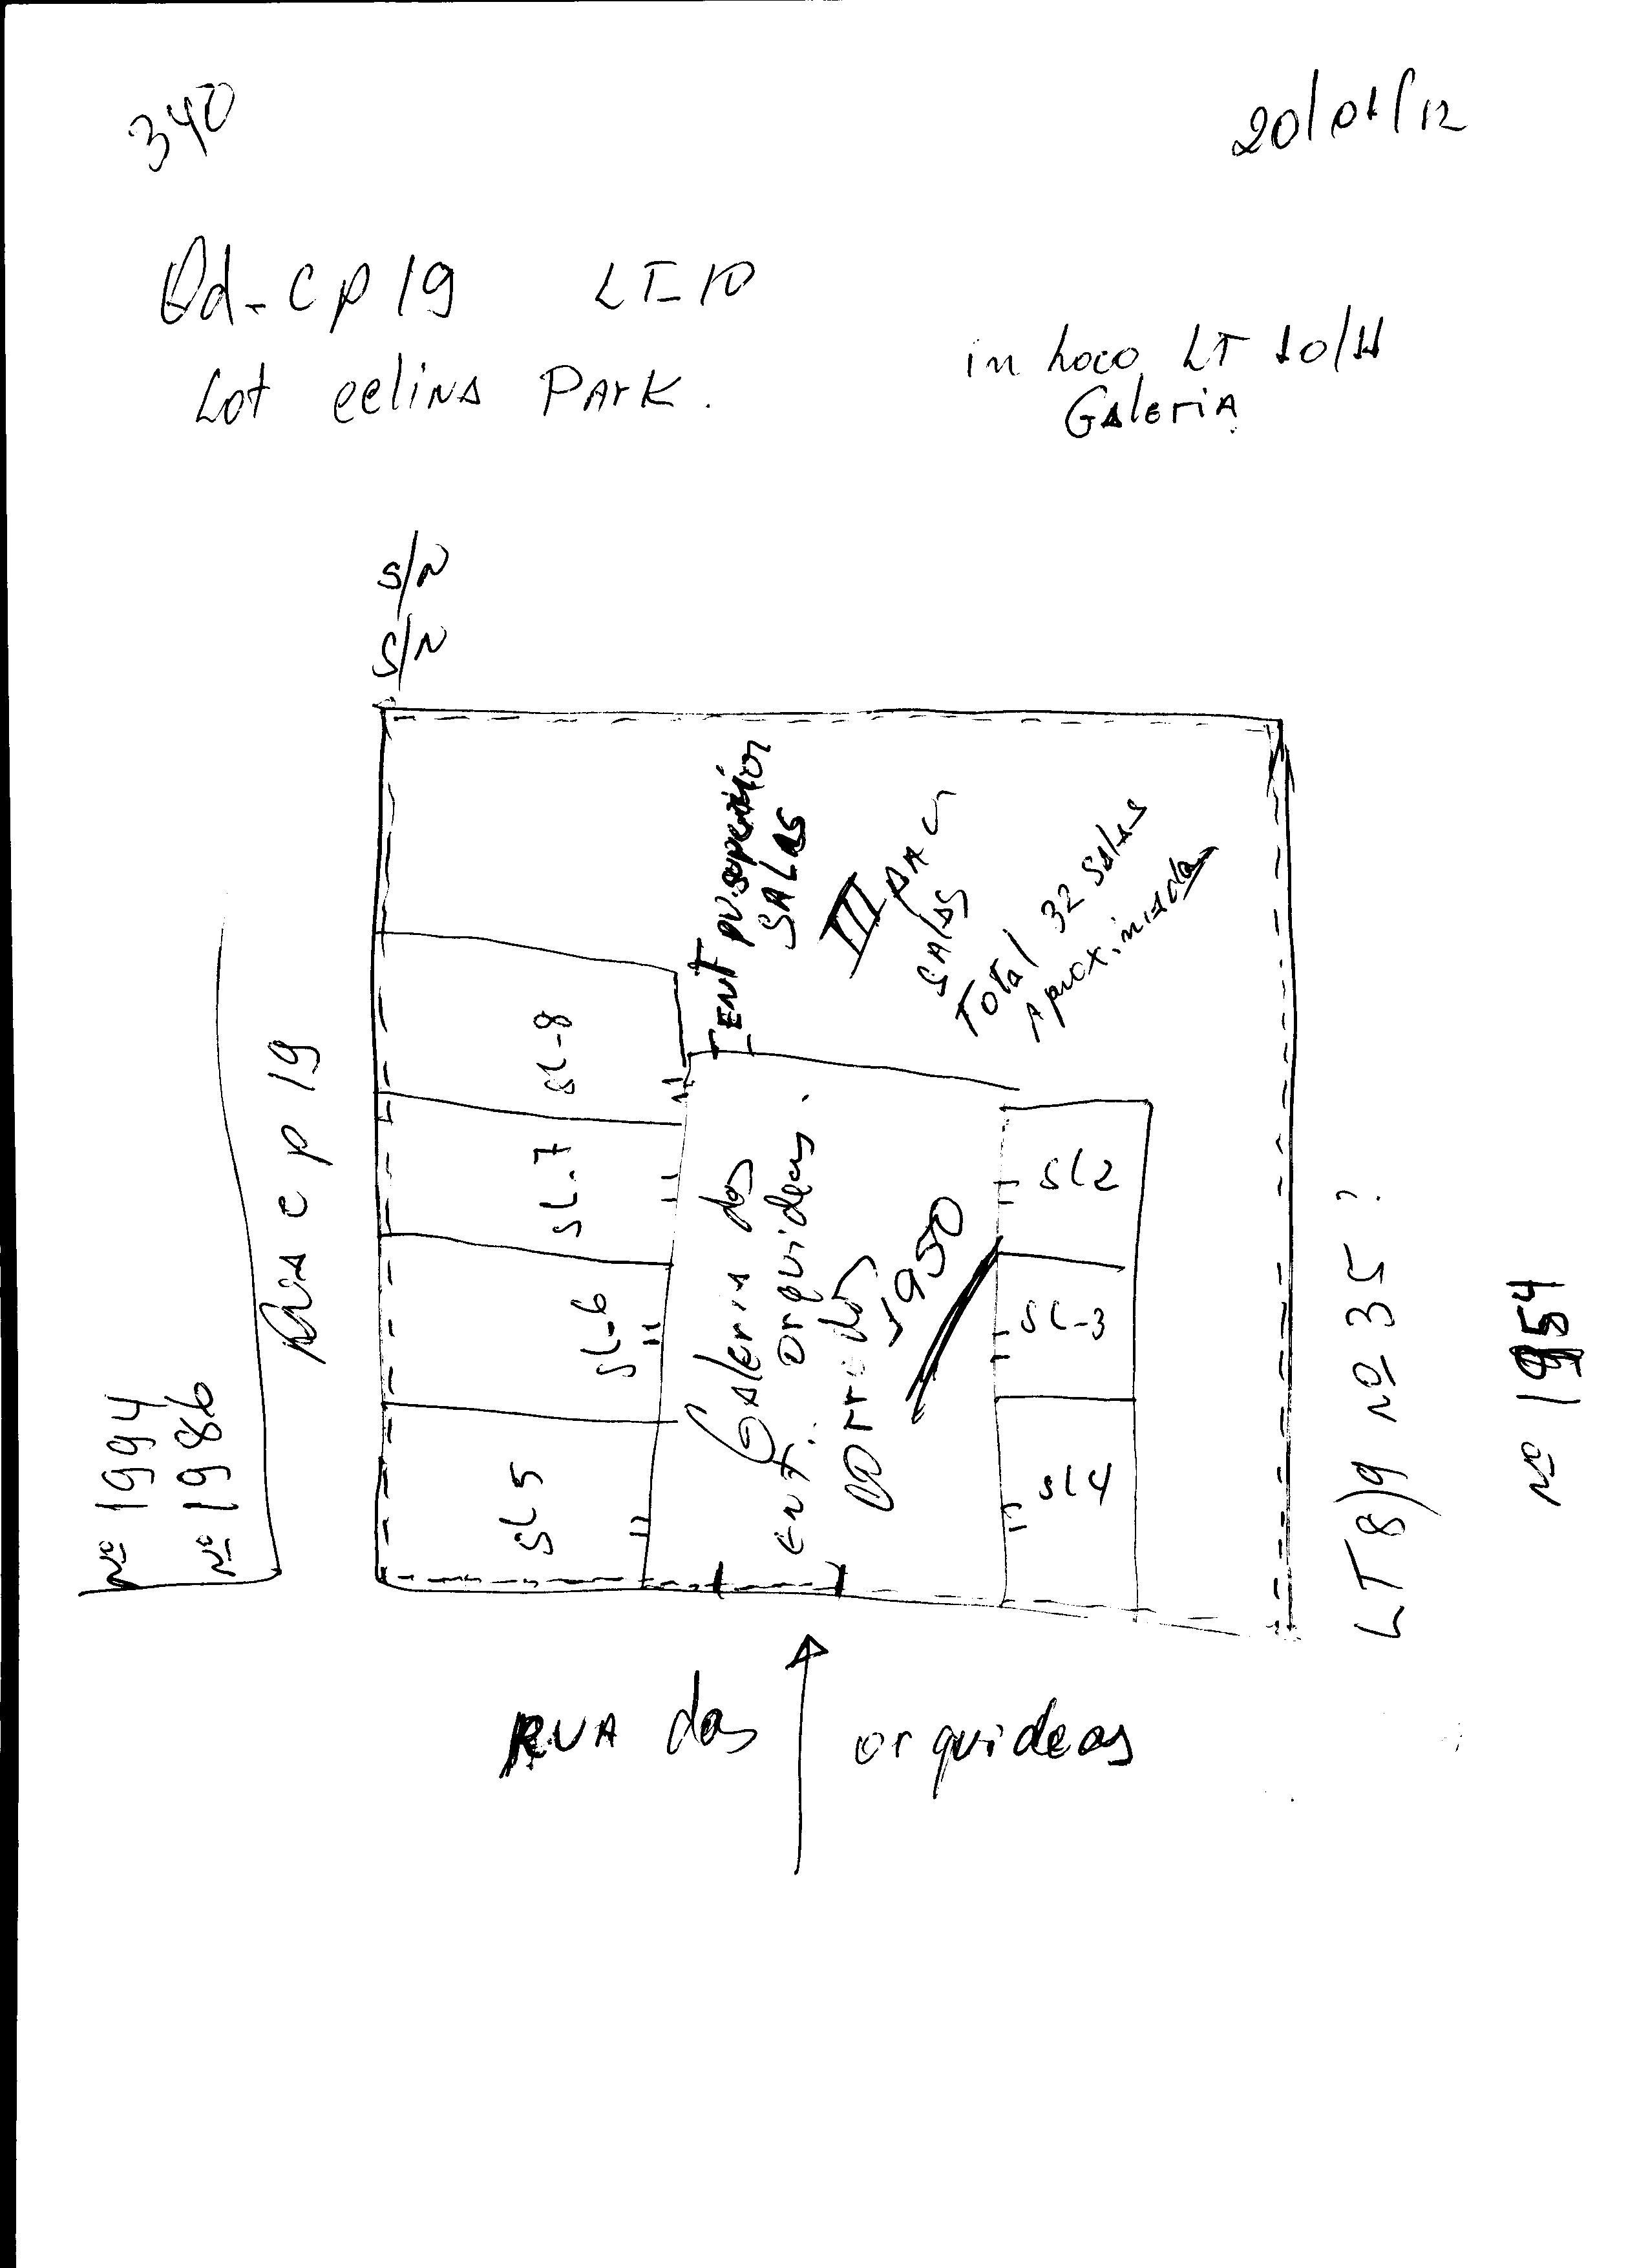 340
20/01/12
Qd-cp19 LT-10
Lot celina PArK.
in Loco LT 10/11
GAleriA
S/N
S/N
ENT PV.superior
SALAS
III
SALAS
Total 32 SALAS
Aproximada
Nº 1994
Nº 1986
RUA c p 19
SL-8
SL.7
SL-6
SL5
GAleriA das
ent. orquideas.
corredor
1950
SL2
SL-3
SL4
LT8)9 Nº 35?
Nº 1954
RUA das orquideas